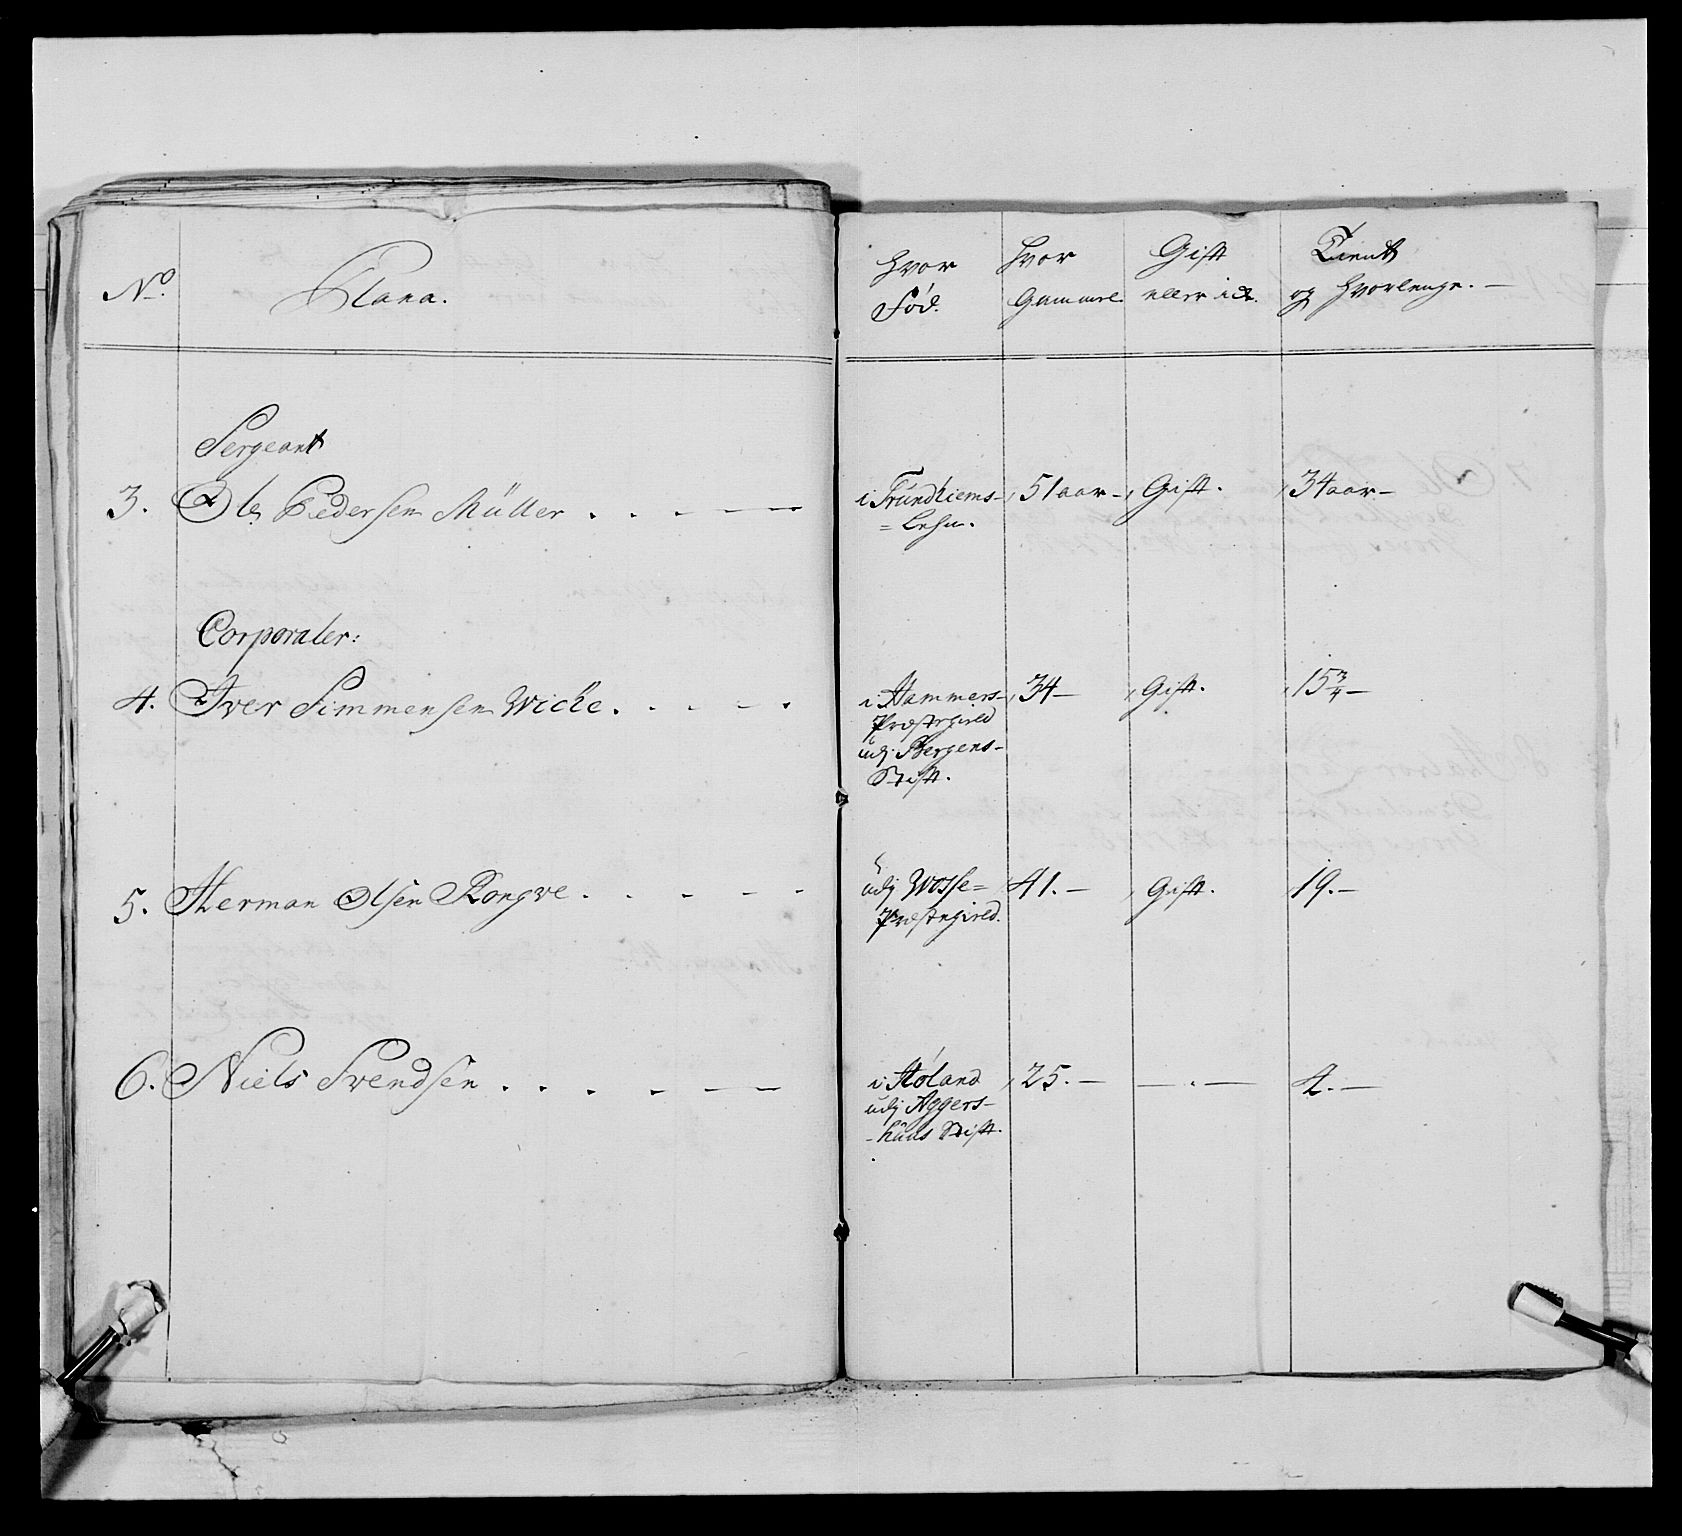 No.
hvor
hvor
Gift
Tient
Fød.
Gammel
eller ick.
og hvorlenge. —
Sergeant
3. Ole Pedersen Müller . . . — —
i Trundhiems-
= Lehn.
51 aar —
Gift.
34 aar —
Corporaler:
4. Iver Simmensen Wicke . . . . .
i Hammers-
Præstegield
udj Bergens-
Stift.
34 —
Gift.
15 3/4 —
5. Herman Olsen Rongve . . . . .
udj Wosse=
Præstegield.
41. —
Gift.
19. —
6. Niels Svendsen . . . . — —
i Høland
udj Aggers-
-huus Stift.
25. —
— . —
4. —